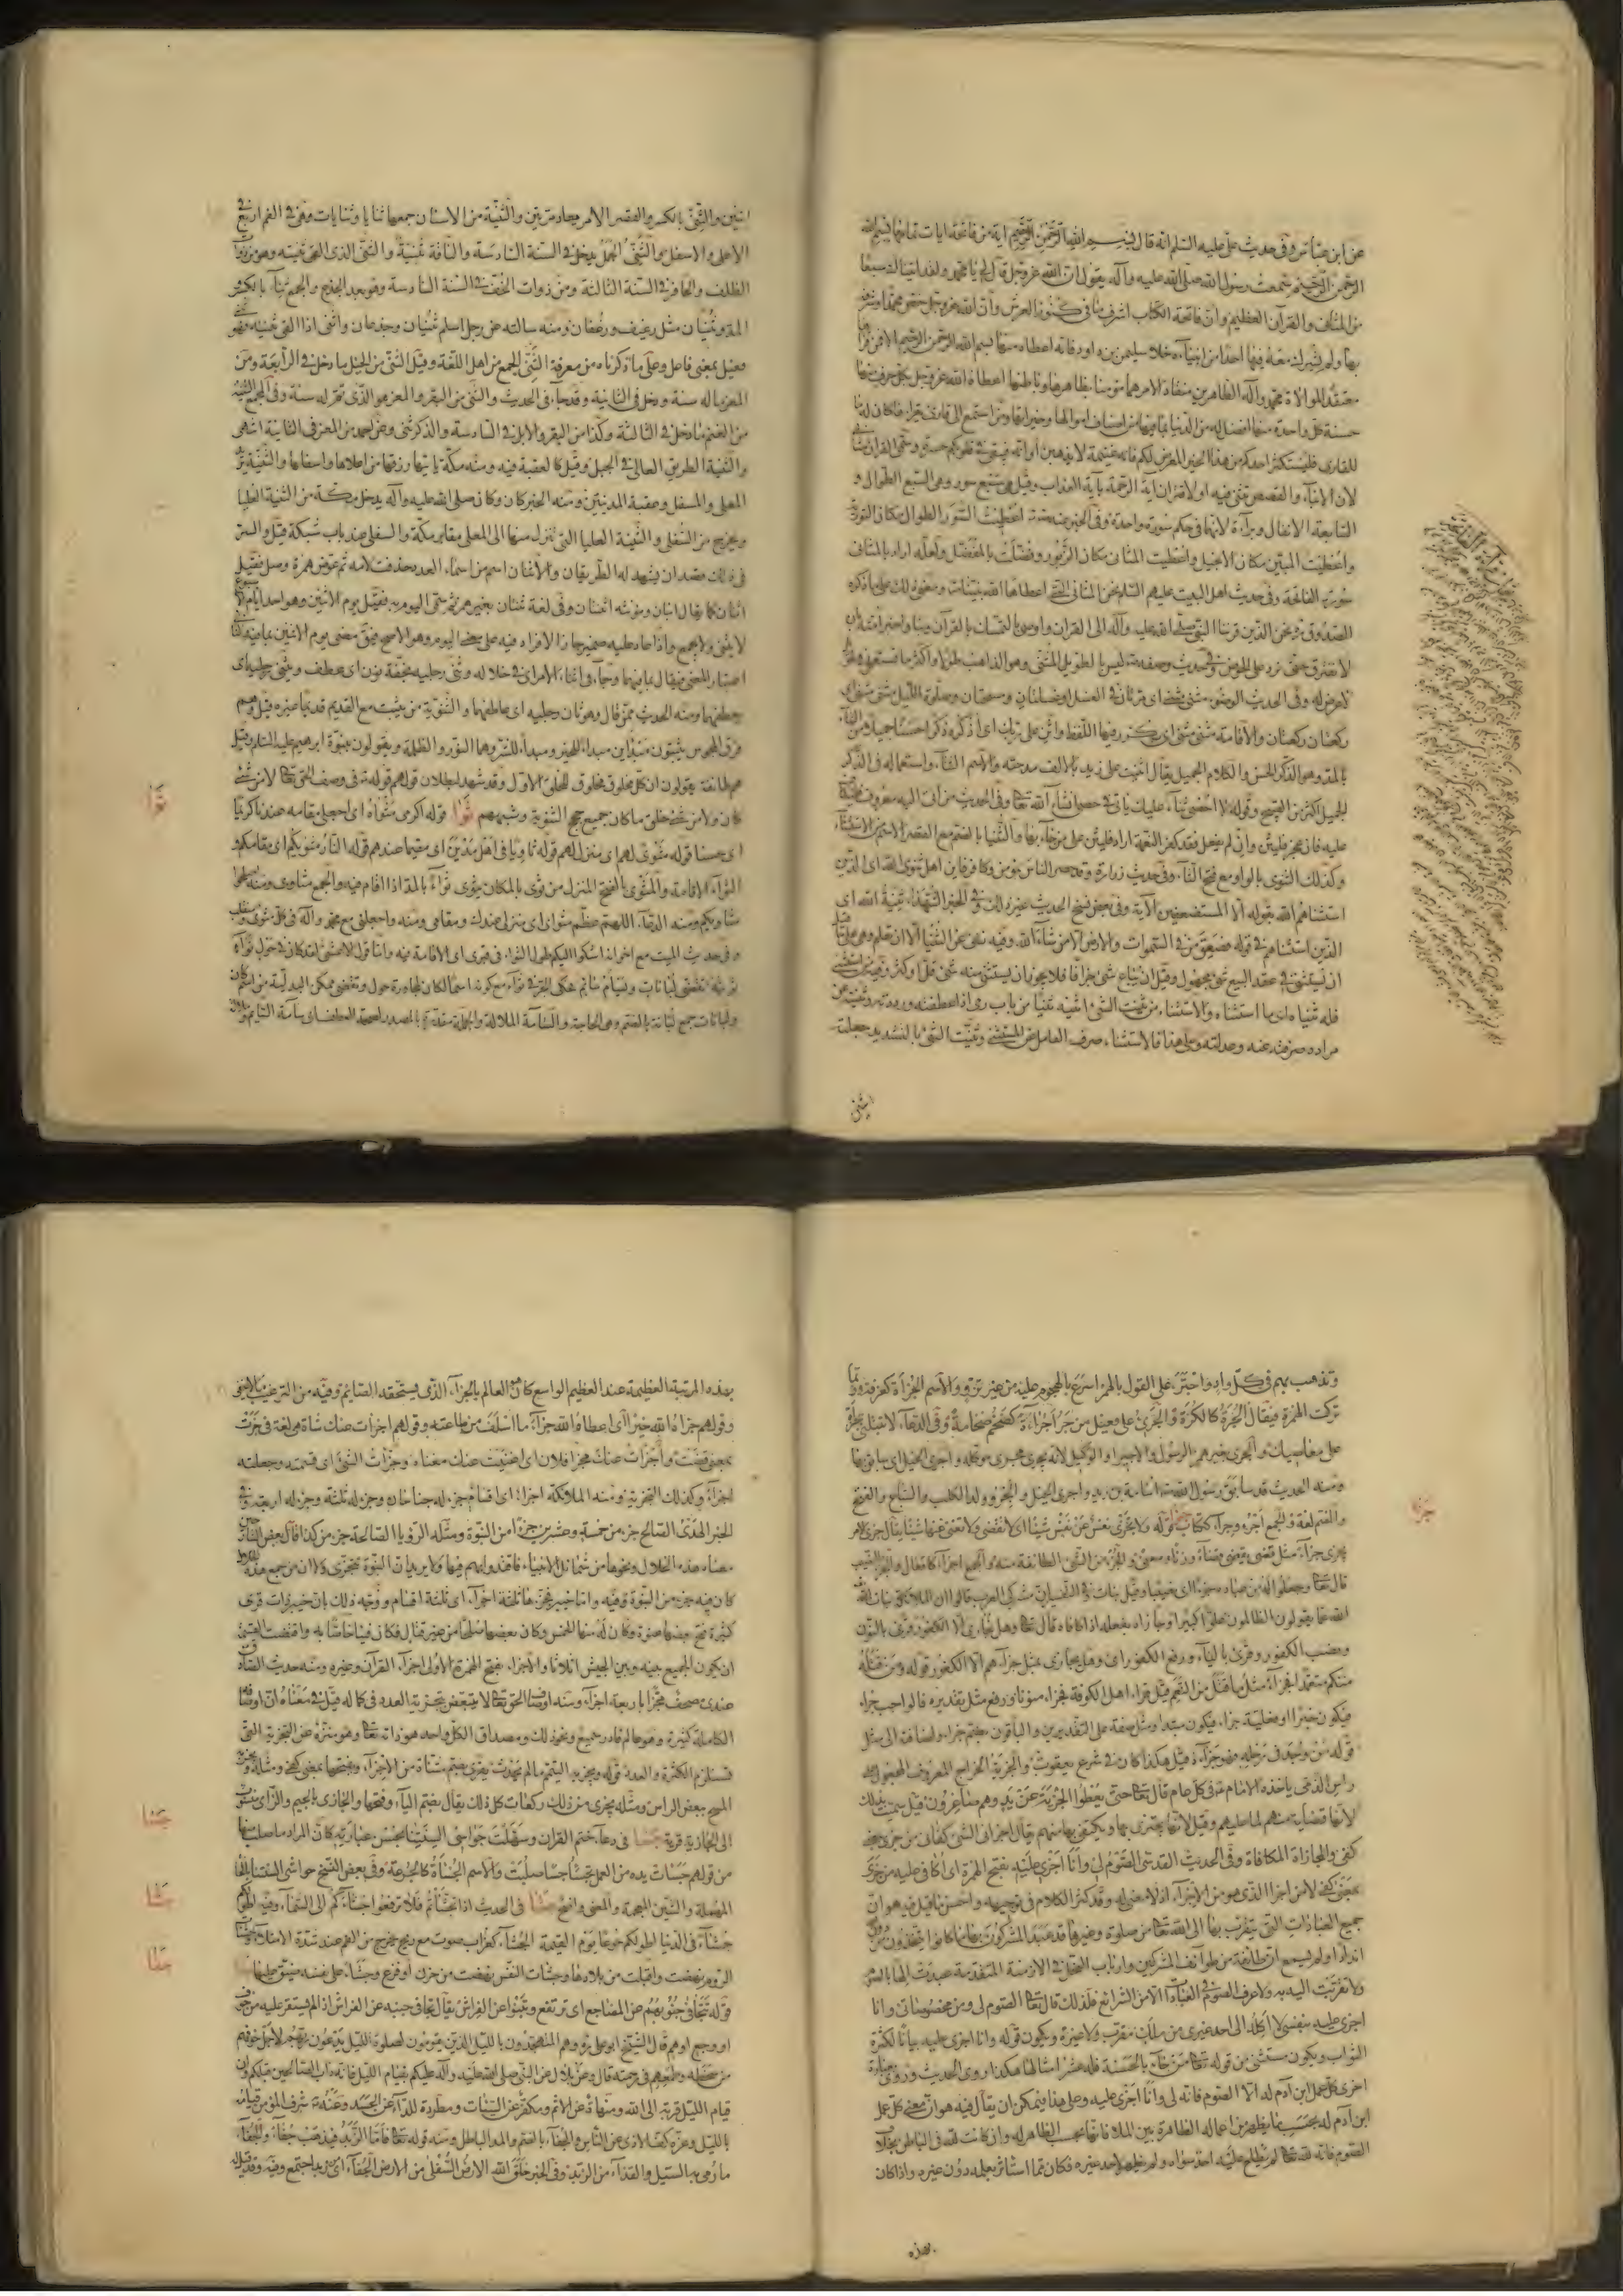 عن ابن عباس وفى حديث على عليه السلم انه قال بسم الله الرحمن الرحيم اية من فاتحة ايات تمامها بسم الله
الرحمن الرحيم سمعت رسول الله صلى الله عليه وآله يقول ان الله عز وجل قال لى يا محمد ولقد اتيناك سبعا
من المثانى والقرآن العظيم وان فاتحة الكتاب اشرف ما فى كنوز العرش وان الله عز وجل خص محمدا وشرفه
بها ولم يشرك معه فيها احدا من انبيائه ما خلا سليمن بن داود فانه اعطاه منها بسم الله الرحمن الرحيم الا فمن قرأ
معتقدا لموالاة محمد وآله الطاهرين منقادا لامرهما مؤمنا بظاهرها وباطنها اعطاه الله عز وجل بكل حرف منها
حسنة كل واحدة منها افضل له من الدنيا بما فيها من اصناف اموالها وخيراتها ومن استمع الى قارئ يقرأ كان له ما
للقارى فليستكثر احدكم من هذا الخير المعرض لكم فانه غنيمة لا يذهبن اوانه فيبقى فى قلوبكم حسرة وسمى القرآن مثانى
لان الانباء والقصص تثنى فيه او لاقتران اية الرحمة باية العذاب وقيل هى سبع سور وهى السبع الطوال و
السابعة الانفال وبراءة لانهما فى حكم سورة واحدة وفى الخبر عنه اعطيت السور الطوال مكان التورية
واعطيت المئين مكان الانجيل واعطيت المثانى مكان الزبور وفضلت بالمفصل ولعله اراد بالمثانى
سورة الفاتحة وفى حديث اهل البيت عليهم السلم نحن المثانى التى اعطاها الله نبينا ومعنى ذلك على ما ذكره
الصدوق نحن الذين قرننا النبى صلى الله عليه وآله الى القرآن واوصى بالتمسك بالقرآن وبنا واخبر امته ان
لا نفترق حتى نرد على الحوض وفى حديث وصفه ليس بالطويل المثنى وهو الذاهب طولا واكثر ما يستعمل فى طول
لا عرض له وفى الحديث الوضوء مثنى مثنى اى مرتان فى الغسل او غسلتان ومسحتان وصلوة الليل مثنى مثنى اى
ركعتان ركعتان والاقامة مثنى مثنى اى يكرر فيها اللفظ واثن على ربك اى اذكره ذكرا حسنا جميلا من الثناء
بالمد وهو الذكر الحسن والكلام الجميل يقال اثنيت على زيد بالالف مدحته والاسم الثناء واستعماله فى الذكر
الجميل اكثر من القبيح وقوله لا احصى ثناء عليك ياتى فى حصى ان شاء الله تعالى وفى الحديث من اتى اليه معروف فليكاف
عليه فان عجز فليثن وان لم يفعل فقد كفر النعمة اراد فليثن على من جاء بها والثنيا بالضم مع القصر الاسم من الاستثناء
وكذلك الثنوى بالواو مع فتح الثاء وفى حديث زرارة وقد حصر الناس بمؤمن وكافر فاين اهل ثنوى الله اى الذين
استثناهم الله بقوله الا المستضعفين الاية وفى بعض نسخ الحديث غير ذلك وفى الخبر الشهداء ثنية الله اى
الذين استثناهم فى قوله فصعق من فى السموات والارض الا من شاء الله وفيه نهى عن الثنيا الا ان تعلم وهى على ما قيل
ان يستثنى فى عقد البيع شئ مجهول وقيل ان يباع شئ جزافا فلا يجوز ان يستثنى منه شئ قل او كثر وفيه من استثنى
فله ثنياه اى ما استثناه والاستثناء من ثنيت الشئ اثنيه ثنيا من باب رمى اذا عطفته ورددته وثنيته عن
مراده صرفته عنه وعدلته وعلى هذا فالاستثناء صرف العامل عن المستثنى وثنيت الشئ بالتشديد جعلته
اثنين
اثنين والثنى بالكسر والقصر الامر يعاد مرتين والثنية من الاسنان جمعها ثنايا وثنيات وهى فى الفم اربع فى
الاعلى والاسفل والثنى الجمل يدخل فى السنة السادسة والناقة ثنية والثنى الذى القى ثنيته وهو من ذوات
الظلف والحافر فى السنة الثالثة ومن ذوات الخف فى السنة السادسة وهو بعد الجذع والجمع ثناء بالكسر و
المد وثنيان مثل رغيف ورغفان ومنه سالته عن رجل اسلم ثنيان وجذعان واثنى اذا القى ثنيته فهو ثنى
فعيل بمعنى فاعل وعلى ما ذكرناه من معرفة الثنى الجمع من اهل اللغة وقيل الثنى من الخيل ما دخل فى الرابعة ومن
المعز ما له سنة ودخل فى الثانية وقد جاء فى الحديث والثنى من البقر والمعز هو الذى تم له سنة وفى المجمع الثنية
من الغنم ما دخل فى الثالثة وكذا من البقر والابل فى السادسة والذكر ثنى وعن احمد من المعز فى الثانية انتهى
والثنية الطريق العالى فى الجبل وقيل كالعقبة فيه ومنه مكة ياتيها رزقها من اعلاها واسفلها والثنية
المعلى والسفل وعقبة المدنيين ومنه الخبر كان وكان صلى الله عليه وآله يدخل مكة من الثنية العليا
ويخرج من السفلى والثنية العليا التى تنزل منها الى المعلى مقابر مكة والسفلى عند باب شبكة قيل والسر
فى ذلك قصد ان يشهد له الطريقان والاثنان اسم من اسماء العدد حذفت لامه ثم عوض همزة وصل فقيل
اثنان كما يقال ابنان ومؤنثه اثنتان وفى لغة ثنتان بغير همز ثم سمى اليوم به فقيل يوم الاثنين وهو احد ايام الاسبوع
لا يثنى ولا يجمع واذا عاد عليه ضمير جاز الافراد فيه على معنى اليوم وهو الاصح فيق مضى يوم الاثنين بما فيه والثانى
اعتبار المعنى فيقال بما فيهما وجاء فى اثناء الامر اى فى خلاله وثنى رجليه بخفة نون اى عطف ويثنى رجليه اى
يعطفهما ومنه الحديث من قال وهو ثان رجليه اى عاطفهما والثنوية من يثبت مع القديم قديما غيره قيل وهم
فرق المجوس يثبتون مبدأين مبدأ للخير ومبدأ للشر وهما النور والظلمة ويقولون بنبوة ابرهيم عليه السلم وقيل
هم طائفة يقولون ان كل مخلوق مخلوق للخلق الاول وقد شهد لبطلان قولهم قوله فى وصف الحق تعالى لا من شئ
كان ولا من شئ خلق ما كان جميع حجج الثنوية وشبههم ثوا قوله اكرمى مثواه اى اجعلى مقامه عندنا كريما
اى حسنا قوله مثوى لهم اى منزل لهم قوله ثاويا فى اهل مدين اى مقيما عندهم قوله النار مثويكم اى مقامكم و
الثواء الاقامة والمثوى بالفتح المنزل من ثوى بالمكان يثوى ثواء بالمد اذا اقام فيه والجمع مثاوى ومنه
مثاويكم ومنه الدعاء اللهم عظم مثواى اى منزلى عندك ومقامى ومنه واجعلنى مع محمد وآله فى كل مثوى ومنقلب
وفى حديث الميت مع اخوانه اشكو اليكم طول الثواء فى قبرى اى الاقامة فيه واما قول الاعشى لقد كان فى حول ثواء
ثويته تقضى لبانات ويسأم سائم
ولبانات جمع لبانة بالضم وهى الحاجة والسآمة الملالة
ثوا
وتذهب بهم فى كل واد واجترء على القول بالهمز اسرع بالهجوم عليه من غير ترو والاسم الجرأة كغرفة وربما
تركت الهمزة فيقال الجرة كالكرة والجرئ على فعيل من جرء جراءة كضخم ضخامة وفى الدعاء لا تبتلنى بجرأة
على معاصيك والجرى بغير همز الرسول والاجير والوكيل لانه يجرى مجرى موكله واجرى الخيل اى سابق بها
ومنه الحديث قد سابق رسول الله اسامة بن زيد واجرى الخيل والجرو ولد الكلب والسباع والفتح
والضم لغة والجمع اجر وجراء ككتاب جزا قوله ولا تجزى نفس عن نفس شيئا اى لا تقضى ولا تغنى عنها شيئا يقال جزى الامر
يجزى جزاء مثل قضى يقضى قضاء وزنا ومعنى والجزء من الشئ الطائفة منه والجمع اجزاء كاقفال والجزء النصيب
قال تعالى وجعلوا له من عباده جزءا اى نصيبا وقيل بنات فى التفسير ان مشركى العرب قالوا ان الملائكة بنات الله
الله عما يقولون الظالمون علوا كبيرا وجازاه بفعله اذا كافاه قال تعالى وهل نجازى الا الكفور وقرئ بالنون
ونصب الكفور وقرئ بالياء ورفع الكفور اى وهل يجازى بمثل جزائهم الا الكفور قوله ومن قتله
منكم متعمدا فجزاء مثل ما قتل من النعم قيل قراء اهل الكوفة فجزاء منونا ورفع مثل بتقديره فالواجب جزاء
فيكون خبرا او فعليه جزاء فيكون مبتدا ومثل صفة على التقديرين والباقون بضم جزاء واضافة الى مثل
قوله من وجد فى رحله فهو جزاؤه قيل هكذا كان فى شرع يعقوب والجزية الخراج المعروف المجعول على
راس الذمى ياخذه الامام فى كل عام قال تعالى حتى يعطوا الجزية عن يد وهم صاغرون قيل سميت بذلك
لانها قضاء منهم لما عليهم وقيل لانها يجتزى بها ويكتفى بها منهم يقال اجزانى الشئ كفانى من جزى بمعنى
كفى والمجازاة المكافاة وفى الحديث القدسى الصوم لى وانا اجزى عليه بفتح الهمزة اى اكافى عليه من جزى
بمعنى كفى لا من اجزا الذى هو من الاجزاء اذ لا معنى له وقد كثر الكلام فى توجيهه واحسن ما قيل فيه هو ان
جميع العبادات التى يتقرب بها الى الله تعالى من صلوة وغيرها قد عبد المشركون بها ما كانوا يتخذون من دون
اندادا ولم يسمع ان طائفة من طوائف المشركين وارباب النحل فى الازمنة المتقدمة عبدت الهتها بالصوم
ولا تقربت اليه به ولا عرف الصوم فى العبادات الا من الشرائع فلذلك قال تعالى الصوم لى ومن مخصوصاتى وانا
اجزى عليه بنفسى لا اكله الى احد غيرى من ملك مقرب ولا غيره ويكون قوله وانا اجزى عليه بيانا لكثرة
الثواب ويكون مستثنى من قوله تعالى من جاء بالحسنة فله عشر امثالها هكذا روى الحديث وروى بعبارة
اخرى كل عمل ابن آدم له الا الصوم فانه لى وانا اجزى عليه وعلى هذا فيمكن ان يقال فيه هو ان معنى كل عمل
ابن آدم له بحسب ما يظهر من اعماله الظاهرة بين الملا فانها بحسب الظاهر له وان كانت لله فى الباطن بخلاف
الصوم فانه لله تعالى لم يطلع عليه احد سواه ولم يظهر لاحد غيره فكان مما استاثر بعلمه دون غيره واذا كان
بهذه
جزا
بهذه المرتبة العظيمة عند العظيم الواسع كان هو العالم بالجزاء الذى يستحقه الصائم وفيه من الترغيب ما لا يخفى
وقولهم جزاه الله خيرا اى اعطاه الله جزاء ما اسلف من طاعته وقولهم اجزات عنك شاة هى لغة فى جزت
بمعنى قضت واجزات عنك مجزا فلان اى اغنيت عنك مغناه وجزات الشئ اى قسمته وجعلته
اجزاء وكذلك التجزية ومنه الملائكة اجزاء اى اقسام جزء له جناحان وجزء له ثلثة وجزء له اربعة وفى
الخبر الهدى الصالح جزء من خمسة وعشرين جزءا من النبوة ومثله الرؤيا الصالحة جزء من كذا قال بعض الشارحين
معناه هذه الخلال ونحوها من شمائل الانبياء فاقتدوا بهم فيها ولا يريد ان النبوة تتجزى ولا ان من جمع هذه الخلال
كان فيه جزء من النبوة وفيه وانما خيبر فجزءها ثلثة اجزاء اى ثلثة اقسام ووجه ذلك بان خيبر ذات قرى
كثيرة فتح بعضها عنوة وكان له منها الخمس وكان بعضها صلحا من غير قتال فكان فيئا خاصا به واقتضت القسمة
ان يكون الجميع بينه وبين الجيش اثلاثا والاجزاء بفتح الهمزة الاولى اجزاء القرآن وغيره ومنه حديث الصادق
عندى مصحف مجزا باربعة عشر اجزاء ومنه اوصاف الحق تعالى لا يتبعض بتجزية العدد فى كماله قيل فى معناه ان اوصافه
الكاملة كثيرة وهو عالم قادر سميع ونحو ذلك ومصداق الكل واحد هو ذاته تعالى وهو منزه عن التجزية التى
تستلزم الكثرة والعدد قوله ويجزيه التيمم ما لم يحدث يقرى بضم مثناة من الاجزاء وبفتحها بمعنى كفى ومثله يجزئه
المسح ببعض الراس ومثله يجزى من ذلك ركعات كل ذلك يقال بضم الياء وفتحها والجازى بالجيم والزاى نسبة
الى الجازية قرية جسا فى دعاء ختم القرآن وسهلت جواسى السنتنا بحسن عبارته كان المراد ما صلب منها
من قولهم جسات يده من العمل تجسا جسا صلبت والاسم الجساة كالجرعة وفى بعض النسخ حواشى السنتنا بالحاء
المهملة والشين المعجمة والمعنى واضح جشا فى الحديث اذا تجشاتم فلا ترفعوا جشاءكم الى السماء وفيه اطولكم
جشاء فى الدنيا اطولكم جوعا يوم القيمة الجشاء كغراب صوت مع ريح يخرج من الفم عند شدة الامتلاء وجشات
الروم نهضت واقبلت من بلادها وجشات النفس نهضت من حزن او فزع وجشاء على نفسه ضيق عليها جفا
قوله تتجافى جنوبهم عن المضاجع اى ترتفع وتنبو عن الفراش يقال تجافى جنبه عن الفراش اذا لم يستقر عليه من خوف
او وجع او هم قال الشيخ ابو على ره وهم المتهجدون بالليل الذين يقومون لصلوة الليل يدعون ربهم لاجل خوفهم
من سخطه وطمعهم فى رحمته قال وعن بلال عن النبى صلى الله عليه وآله عليكم بقيام الليل فانه داب الصالحين قبلكم وان
قيام الليل قربة الى الله ومنهاة عن الاثم وتكفير عن السيئات ومطردة للداء عن الجسد وعنه شرف المؤمن قيامه
بالليل وعزه كف الاذى عن الناس والجفاء بالضم والمد الباطل ومنه قوله تعالى فاما الزبد فيذهب جفاء والجفاء
ما رمى به السيل والقذاء من الزبد وفى الخبر خلق الله الارض السفلى من الزبد الجفاء اى من زبد اجتمع وفيه
جسا
جشا
جفا